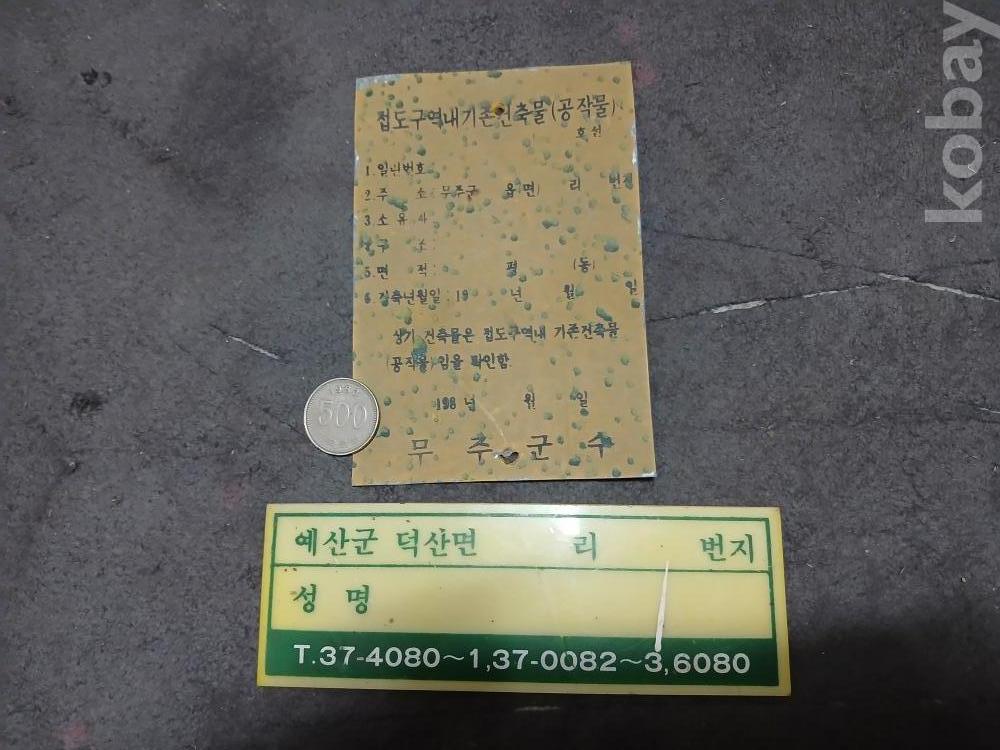 kobay
접도구역내기존건축물(공작물)
호선
1. 일련번호
2. 주 소: 무주군 읍(면) 리 번지
3. 소 유 자
4. 구 조:
5. 면 적: 평 (동)
6. 건축년월일: 19 년 월 일
상기 건축물은 접도구역내 기존건축물
(공작물)임을 확인함.
198 년 월 일
무 주 군 수
500
예산군 덕산면 리 번지
성 명
T.37-4080~1,37-0082~3,6080